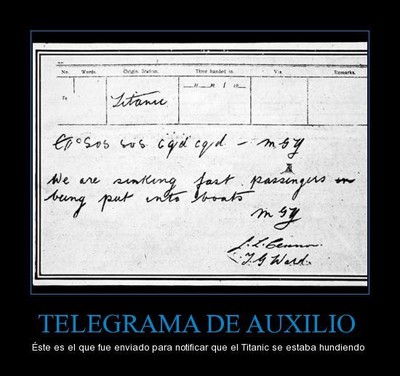 No. Words. Origin. Station. Time handed in. Via. Remarks.
To
Titanic
sos sos cqd cqd - MGY
We are sinking fast passengers
being put into boats
MGY
TELEGRAMA DE AUXILIO
Éste es el que fue enviado para notificar que el Titanic se estaba hundiendo